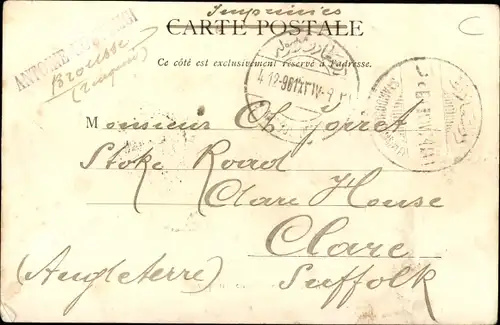 Imprimés
CARTE POSTALE
Ce côté est exclusivement réservé à l'adresse.
ANTOINE
Brousse
(Turquie)
Monsieur Ch. Poiret
Stoke Road
Clare House
Clare
(Angleterre) Suffolk
C